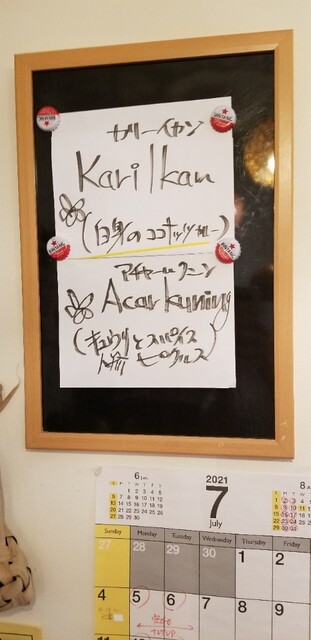 カリーイカン
Kari Ikan
(白身のココナッツカレー)
アチャールクーニン
Acar kuning
(キュウリとスパイス
ピクルス)
6 Jun
2021
7
July
8 A
Sunday Monday Tuesday Wednesday Thursday Friday
27 28 29 30 1 2
4 5 6 7 8 9
11